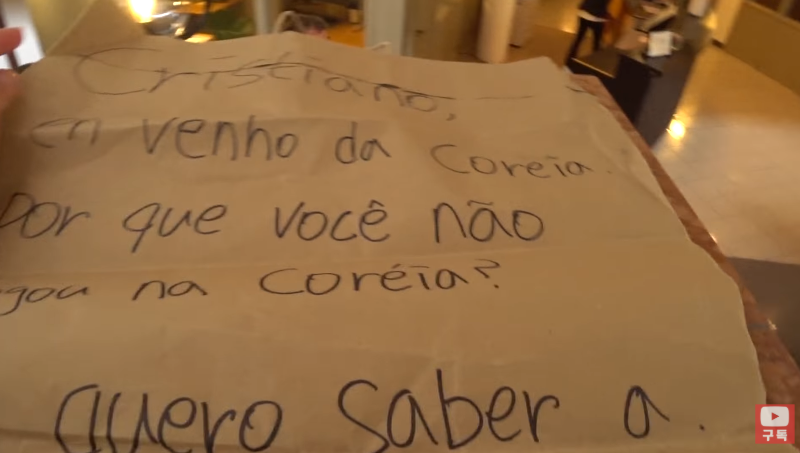 Cristiano,
eu venho da Coreia.
Por que você não
gou na Coréia?
quero saber a.
구독